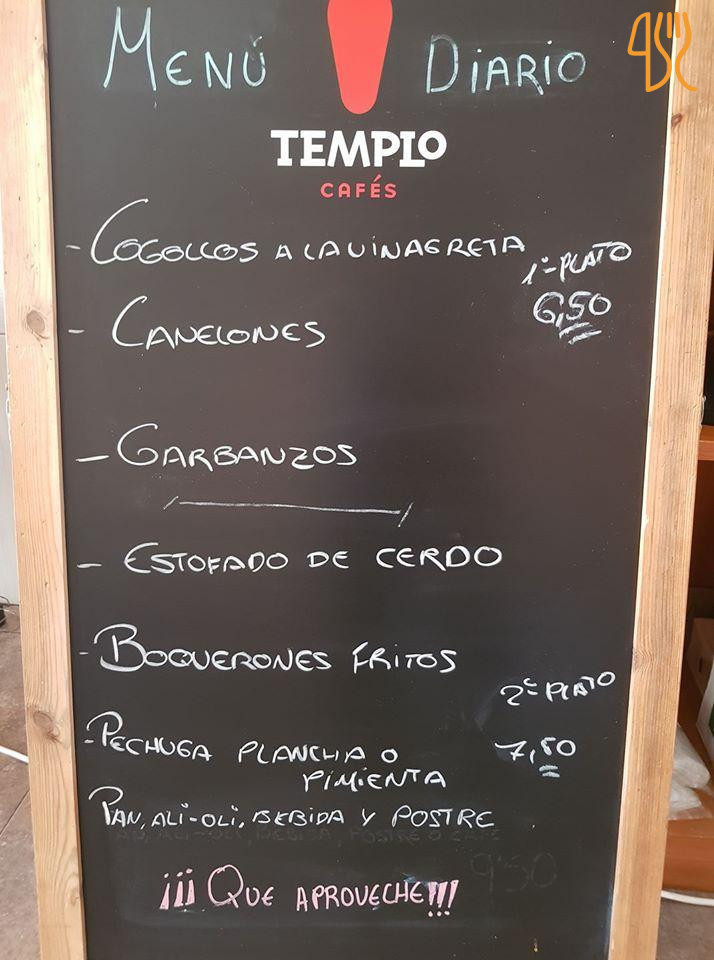 MENÚ DIARIO
TEMPLO
CAFÉS
- COGOLLOS A LA VINAGRETA
1º PLATO
6,50
- CANELONES
- GARBANZOS
- ESTOFADO DE CERDO
- BOQUERONES FRITOS
2º PLATO
7,50
- PECHUGA PLANCHA O
PIMIENTA
PAN, ALI-OLI, BEBIDA Y POSTRE
PAN, ALI-OLI, BEBIDA, POSTRE O CAFE
9'50
¡¡¡QUE APROVECHE!!!